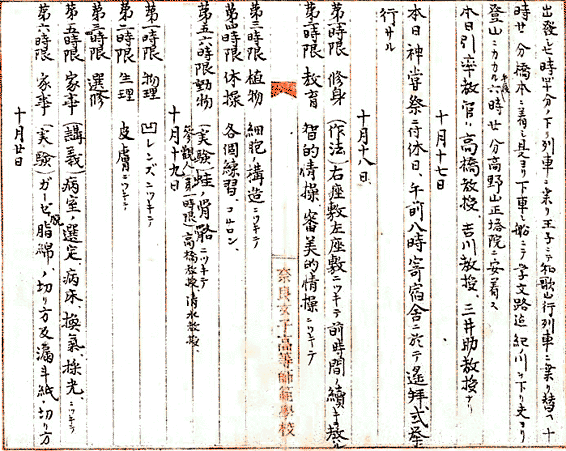 出發七時半分ノ下リ列車ニ乗リ王子ニテ和歌山行列車ニ乗リ替ヘ十
時廿分橋本ニ着シ是ヨリ下車シ船ニテ学文路迄紀ノ川ヲ下リ之ヨリ
登山ニカカル午後六時廿分高野山正塔院ニ安着ス
本日引率教官ハ高橋教授、吉川教授、三井助教授ナリ
十月十七日
本日神嘗祭ニ付休日、午前八時寄宿舎ニ於テ遙拝式挙
行サル
十月十八日
第一時限 修身 (作法)右座敷左座敷ニツキテ前時間ノ續キ
第二時限 教育 智的情操、審美的情操ニツキテ
奈良女子高等師範學校
第三時限 植物 細胞ノ構造ニツキテ
第四時限 体操 各個練習、コルロン、
第五六時限 動物 (実験)蛙ノ骨骼ニツキテ
参観人(第一時限)高橋教授、清水教授、
十月十九日
第一時限 物理 凹レンズニツキテ
第二時限 生理 皮膚ニツキテ
第三時限 選修
第五時限 家事(講義)病室ノ選定、病床、換氣、採光ニツキテ
第六時限 家事(実験)ガーゼ脱脂綿ノ切リ方及漏斗紙ノ切リ方
十月廿日